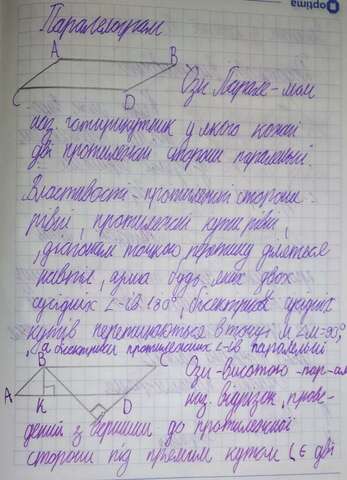 optima
Паралелограм
A B
C D
Озн. Парал-мом
наз. чотирикутник у якого кожні
дві протилежні сторони паралельні.
Властивості - протилежні сторони
рівні, протилежні кути рівні,
, діагоналі точкою перетину діляться
навпіл, сума будь яких двох
сусідніх ∠-ів 180°, бісектриси сусідніх
кутів перетинаються в точці M ∠M=90°,
, а бісектриси протилежних ∠-ів паралельні
B C
A K D
Озн - висотою - пар-ам
наз. відрізок, прове-
дений з вершини до протилежної
сторони під прямим кутом (є дві